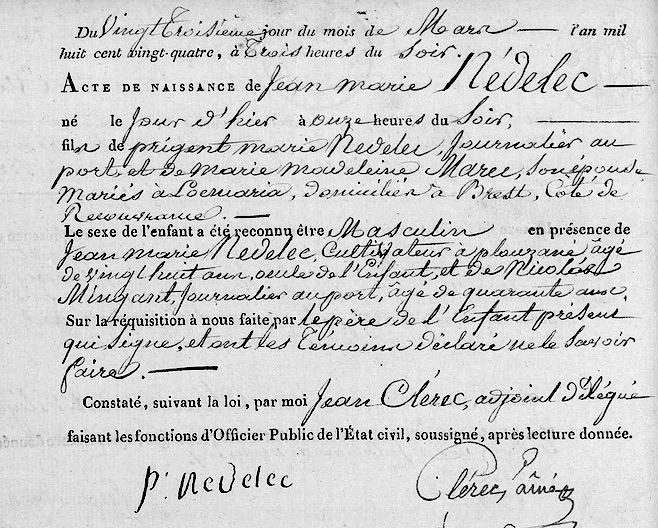 Du Vingt Troisième jour du mois de Mars l'an mil
huit cent vingt-quatre, à Trois heures du Soir.
ACTE DE NAISSANCE de Jean marie Nédelec
né le Jour d'hier à onze heures du Soir,
fils de prigent marie Nedelec, Journalier au
port, et de marie madeleine Marec, son épouse
Mariés à Locmaria, domiciliés à Brest, Côté de
Recouvrance.
Le sexe de l'enfant a été reconnu être Masculin en présence de
Jean marie Nedelec, Cultivateur a plouzané âgé
de vingt huit ans, oncle de l'Enfant, et de Nicolas
Mingant, Journalier au port, âgé de quarante ans.
Sur la réquisition à nous faite par le père de l'Enfant présent
qui Signe, et ont les Témoins déclaré ne le Savoir
faire.
Constaté, suivant la loi, par moi Jean Clérec, adjoint délégué
faisant les fonctions d'Officier Public de l'État civil, soussigné, après lecture donnée.
p. nedelec
Clérec, aîné